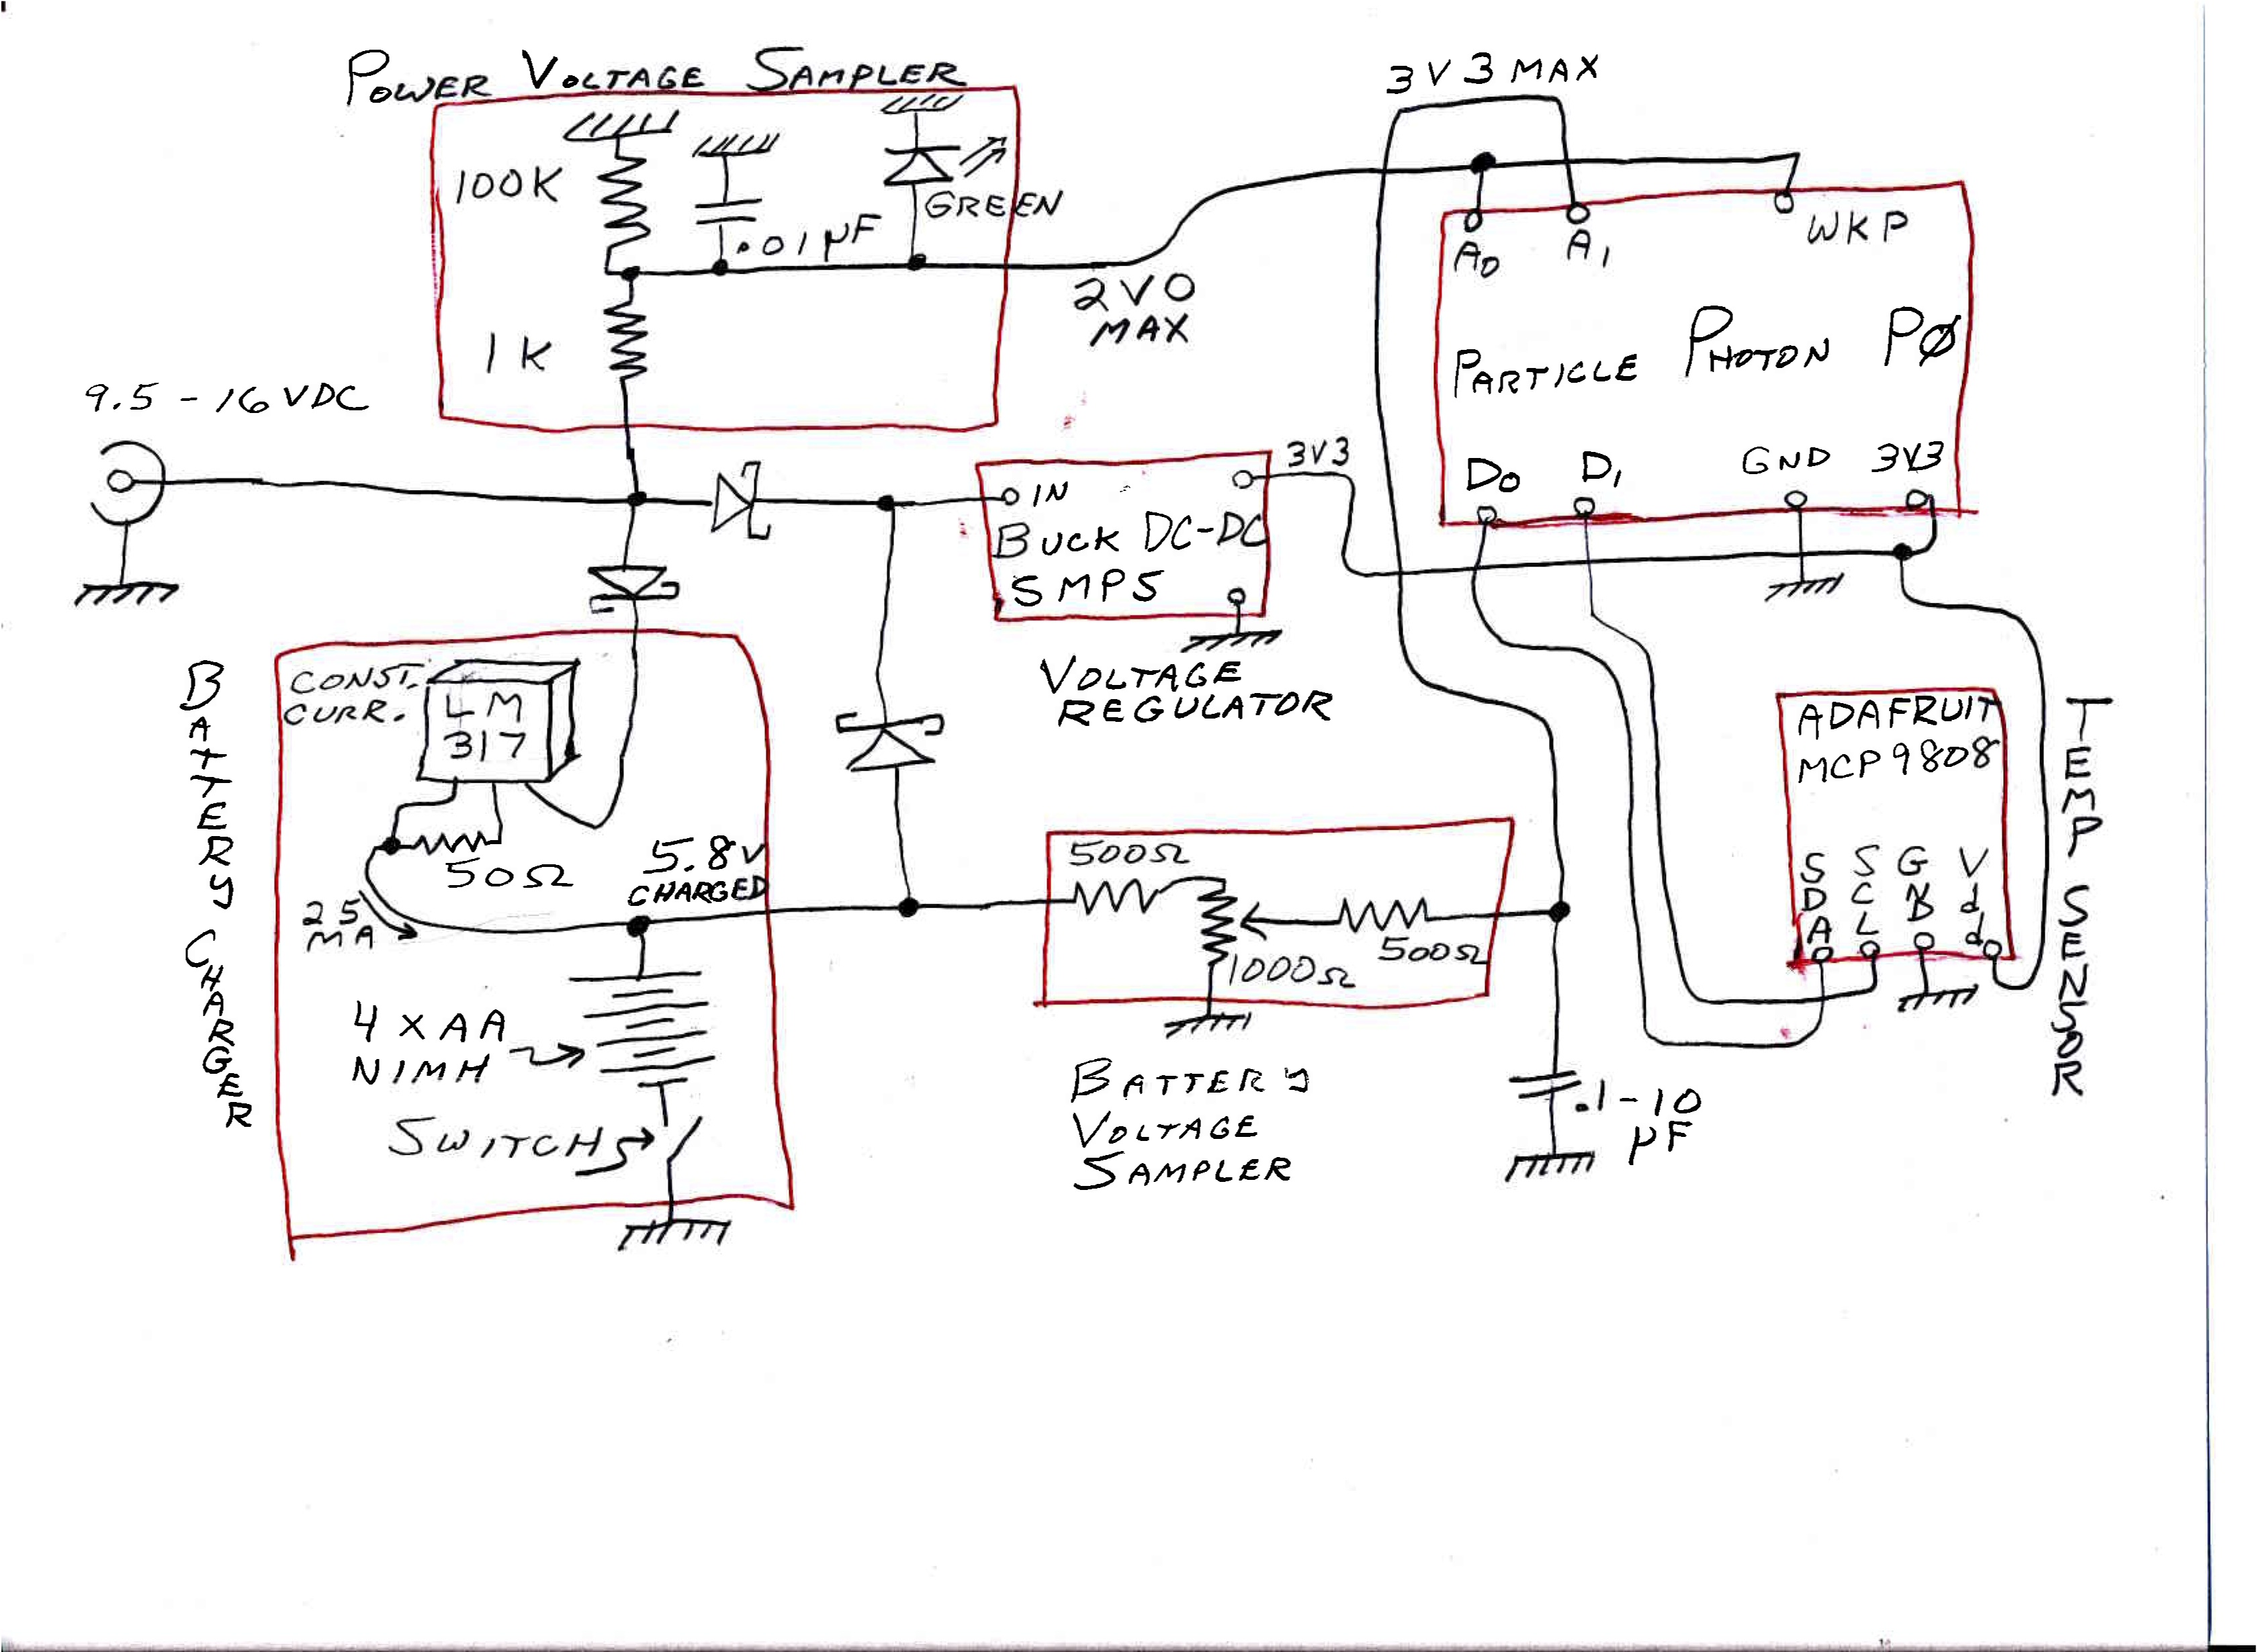 POWER VOLTAGE SAMPLER
100K
.01µF
GREEN
1K
2V0
MAX
3V3 MAX
A0
A1
WKP
PARTICLE PHOTON PØ
D0
D1
GND
3V3
9.5 - 16 VDC
IN
3V3
BUCK DC-DC
SMPS
VOLTAGE
REGULATOR
BATTERY CHARGER
CONST.
CURR.
LM
317
50Ω
25
MA
5.8V
CHARGED
4 X AA
NIMH
SWITCH
500Ω
1000Ω
500Ω
BATTERY
VOLTAGE
SAMPLER
.1-10
µF
ADAFRUIT
MCP9808
SDA
SCL
GND
Vdd
TEMP SENSOR